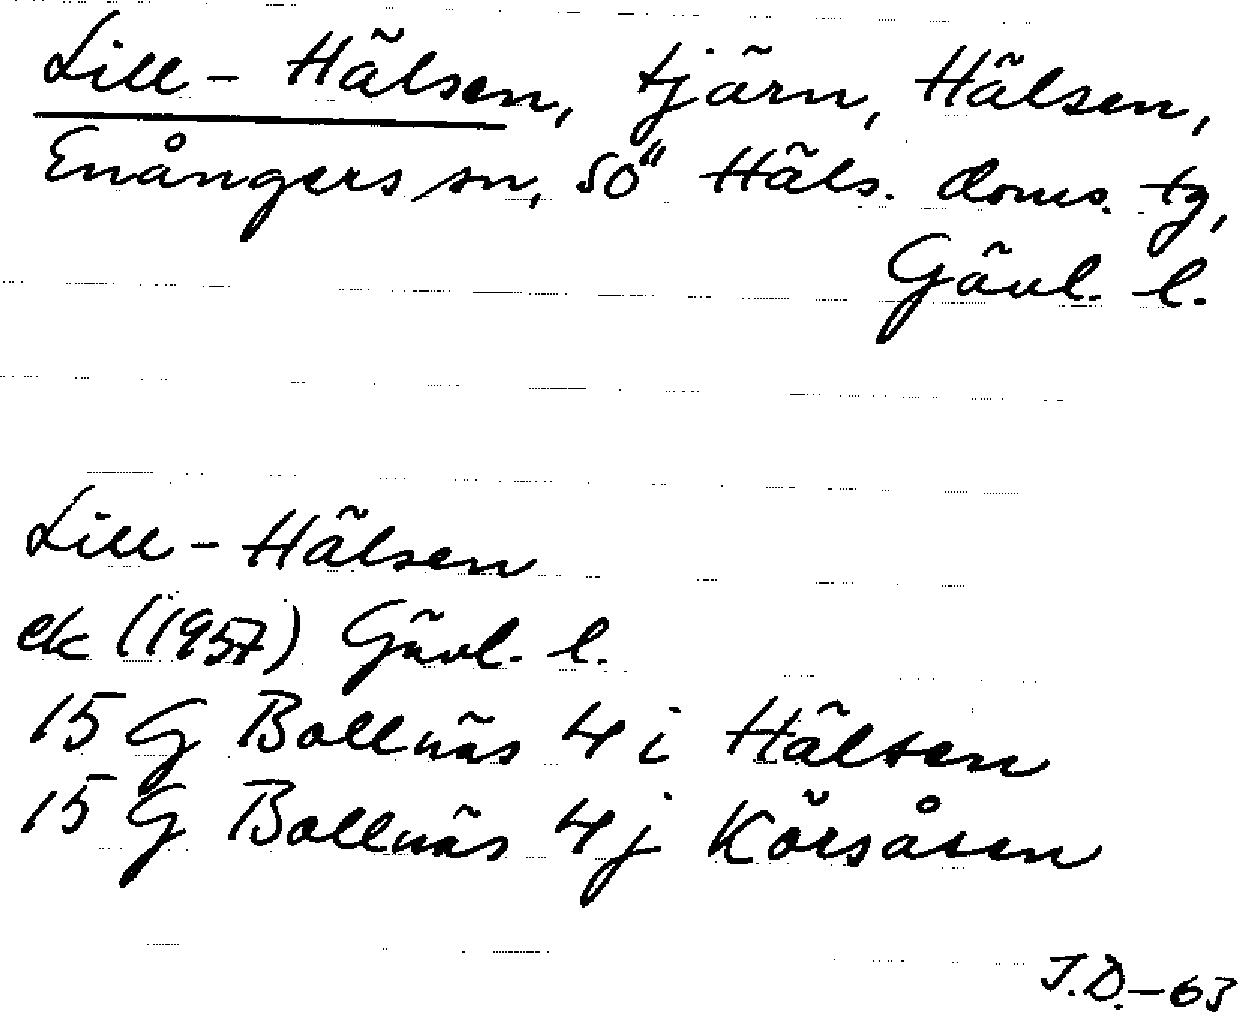 Lill-Hälsen, tjärn, Hälsen,
Enångers sn, SÖ Häls. doms. tg,
Gävl. l.
Lill-Hälsen
ek (1957) Gävl. l.
15 G Bollnäs 4 i Hälsen
15 G Bollnäs 4 j Körsåsen
J.D.-63